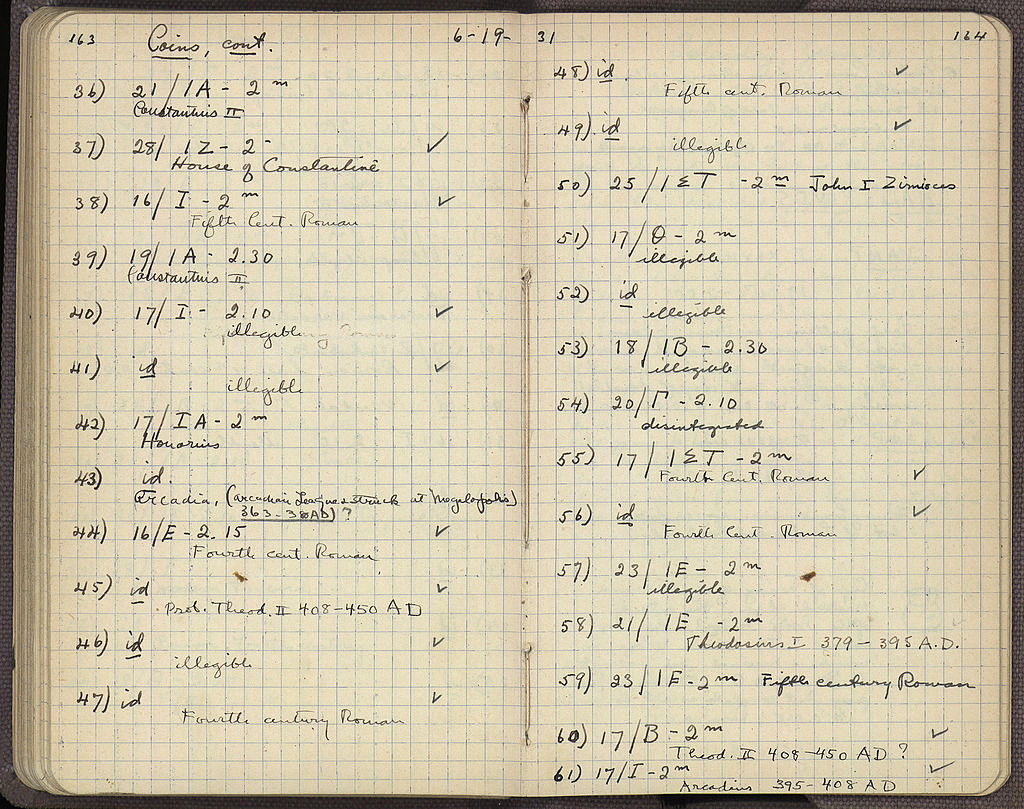 163
Coins, cont. 6-19-
36) 21/IA - 2 m
Constantius II
37) 28/ IZ - 2 -
House of Constantine
38) 16/ I - 2 m
Fifth Cent. Roman
39) 19/ IA - 2.30
Constantius II
40) 17/ I - 2.10
illegible
41) id
illegible
42) 17/ IA - 2 m
Honorius
43) id.
Arcadia, (Arcadian League struck at Megalopolis)
363-38AD) ?
44) 16/E - 2.15
Fourth cent. Roman
45) id
Prob. Theod. II 408-450 AD
46) id
illegible
47) id
Fourth century Roman
31 164
48) id.
Fifth cent. Roman
49). id
illegible
50) 25 / IΣT - 2 m John I Zimisces
51) 17/Θ - 2 m
illegible
52) id
illegible
53) 18/ IB - 2.30
illegible
54) 20/Γ - 2.10
disintegrated
55) 17/ IΣT - 2 m
Fourth Cent. Roman
56) id
Fourth Cent. Roman
57) 23/ IE - 2 m
illegible
58) 21/ IE - 2 m
Theodosius I 379-395 A.D.
59) 23/IE - 2 m Fifth century Roman
60) 17/B - 2 m
Theod. II 408-450 AD ?
61) 17/I - 2 m
Arcadius 395-408 AD